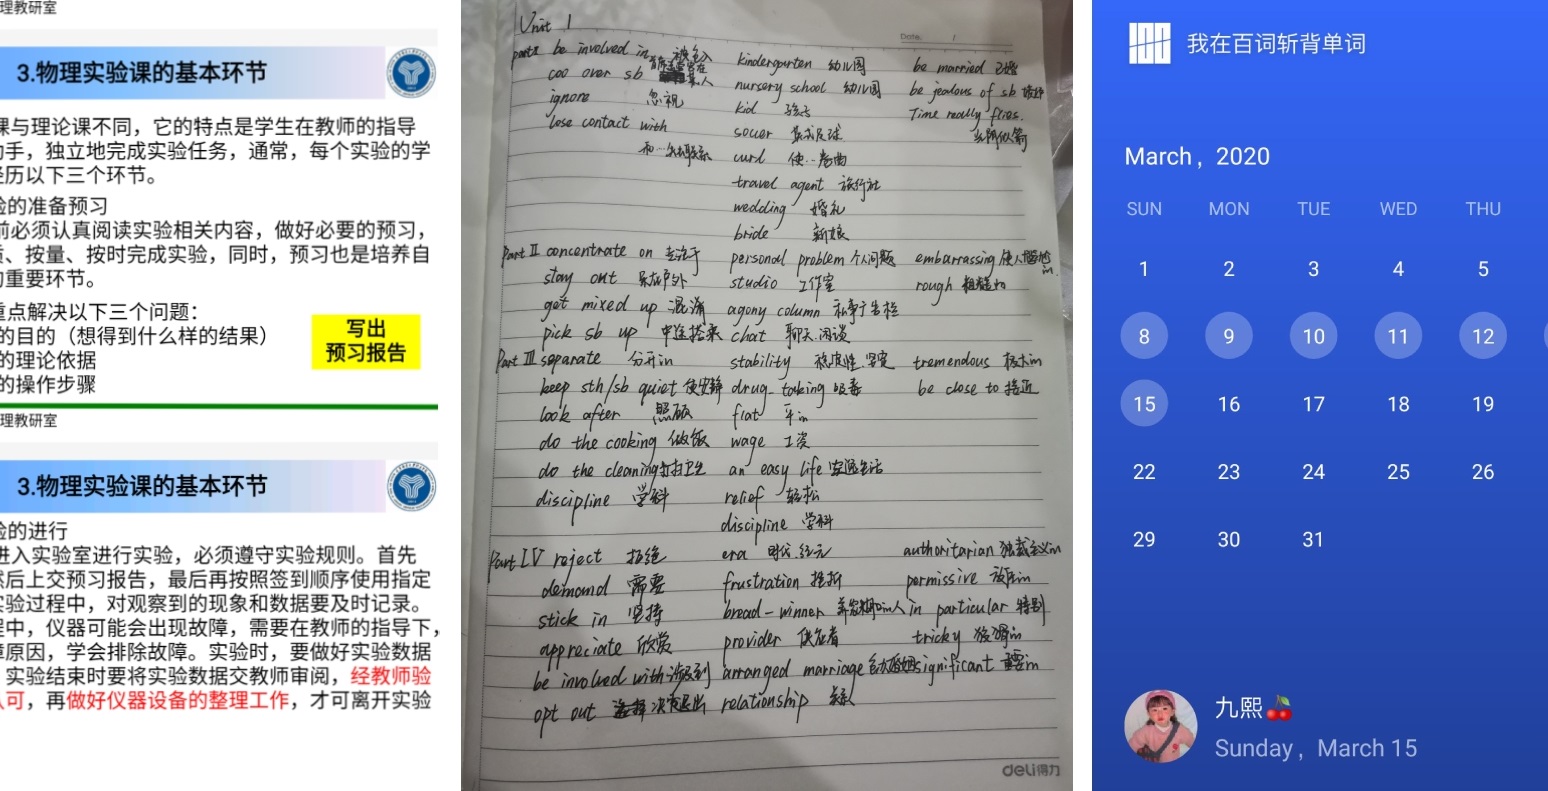 理教研室
3.物理实验课的基本环节
课与理论课不同，它的特点是学生在教师的指导
手，独立地完成实验任务，通常，每个实验的学
历以下三个环节。
的准备预习
前必须认真阅读实验相关内容，做好必要的预习，
、按量、按时完成实验，同时，预习也是培养自
重要环节。
重点解决以下三个问题：
的目的（想得到什么样的结果）
的理论依据
的操作步骤
写出
预习报告
理教研室
3.物理实验课的基本环节
验的进行
进入实验室进行实验，必须遵守实验规则。首先
然后上交预习报告，最后再按照签到顺序使用指定
实验过程中，对观察到的现象和数据要及时记录。
程中，仪器可能会出现故障，需要在教师的指导下，
障原因，学会排除故障。实验时，要做好实验数据
实验结束时要将实验数据交教师审阅，经教师验
可，再做好仪器设备的整理工作，才可离开实验
Unit 1
Date. /
be involved in kindergarten 幼儿园 be married 已婚
coo over sb nursery school 幼儿园 be jealous of sb
ignore 忽视 kid 孩子 Time really flies.
lose contact with soccer 英式足球 光阴似箭
和…失去联系 curl 使…卷曲
travel agent 旅行社
wedding 婚礼
bride 新娘
Part II concentrate on 专注于 personal problem 个人问题 embarrassing 使人尴尬的
stay out 呆在户外 studio 工作室 rough 粗糙的
get mixed up 混淆 agony column 私事广告栏
pick sb up 中途搭乘 chat 聊天.闲谈
Part III separate 分开的 stability 稳定性 tremendous 极大的
keep sth/sb quiet 使安静 drug-taking 吸毒 be close to 接近
look after 照顾 flat 平的
do the cooking 做饭 wage 工资
do the cleaning 打扫卫生 an easy life 安逸生活
discipline 学科 relief 轻松
discipline 学科
Part IV reject 拒绝 era 时代.纪元 authoritarian 独裁主义的
demand 需要 frustration 挫折 permissive 放任的
stick in 坚持 bread-winner 养家糊口的人 in particular 特别
appreciate 欣赏 provider 供应者 tricky 狡猾的
be involved with 涉及到 arranged marriage 包办婚姻 significant 重要的
opt out 决定退出 relationship 关系
deli得力
我在百词斩背单词
March，2020
SUN MON TUE WED THU
1 2 3 4 5
8 9 10 11 12
15 16 17 18 19
22 23 24 25 26
29 30 31
九熙🍒
Sunday，March 15